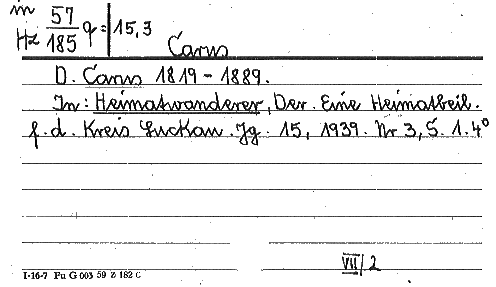 in 57
Hz 185 q = 15,3
Carus
D. Carus 1819-1889.
In: Heimatwanderer, Der. Eine Heimatbeil.
f. d. Kreis Luckau. Jg. 15, 1939. Nr 3, S. 1. 4°
VII/2
I-16-7 Pu G 003 59 Z 182 C